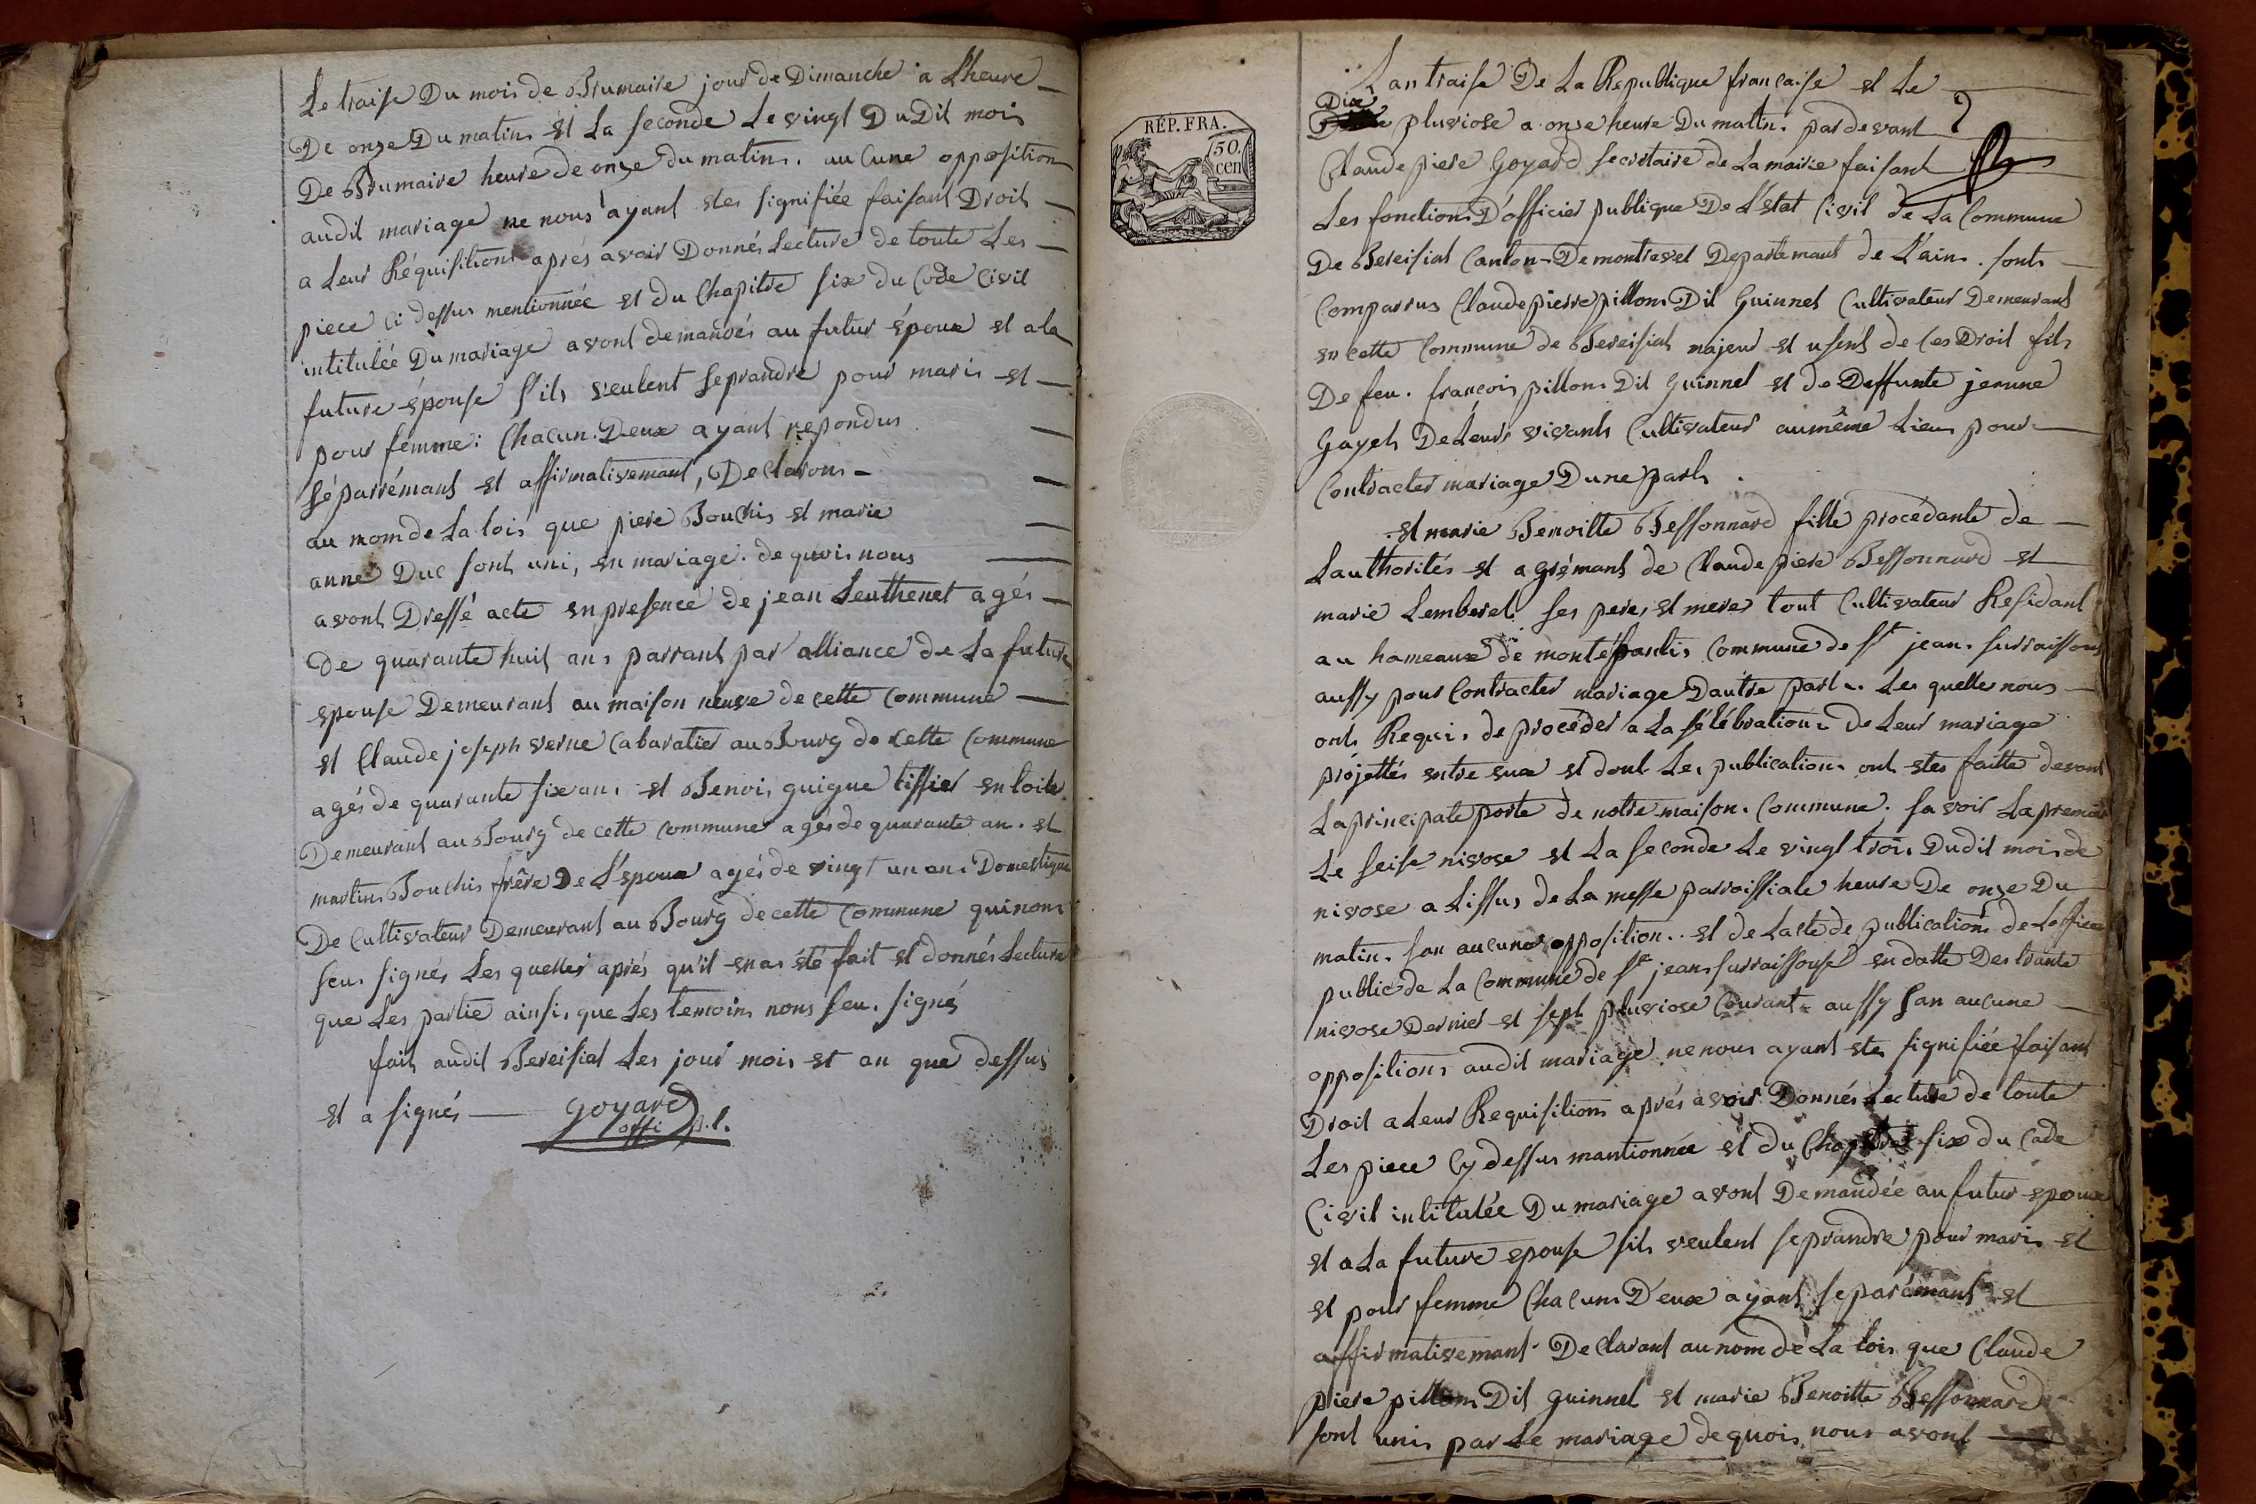 Le traise Du mois de Brumaire jour de Dimanche a L'heure
De onze Du matins et La seconde Le vingt Du Dit mois
De Brumaire heure de onze du matins. au Cune opposition
audit mariage ne nous ayant etes signifiée faisant Droit
a Leur Réquisitions aprés avoir Donnés Lecture de toute Les
piece ci dessus mentionnée et du Chapitre six du Code Civil
intitulée Du mariage avons demandés au futur époux et a la
future épouse s'ils veulent seprandre pour maris et
pour femme: Chacun. Deux ayant repondus
séparrémant et affirmativemant, Declarons
au nom de La lois que piere Bouchis et marie
anne Duc sont uni, en mariage. de quois nous
avons Dressé acte en presence de jean Leuthenet agés
De quarante huit ans parrant par alliance de La future
epouse Demeurant au maison neuve de cette commune
et Claude joseph verne Cabaratier au Bourg de cette Commune
agés de quarante six ans et Benois guigue tissier en toile
Demeurant au Bourg de cette Commune agés de quarante an. et
martins Bouchis frêre De L'epoux agés de vingt un ans Domestique
De Cultivateur Demeurant au Bourg de cette Commune qui nons
seus signés Les quelles aprés qu'il en as été fait et donnés Lecture
que Les partie ainsis que Les temoins nons seu. signés
fait audit Bereisiat Les jour mois et an que dessus
et a signés Goyard
offi p.l.
RÉP. FRA.
50
cen
Lan traise De La Republique française et Le
Dix
pluviose a onze heure Du matin. pardevant
Claude piere Goyard secretaire de La mairie faisant
Les fonctions D'officier publique De L'Etat Civil de La Commune
De Bereisiat Canton De montrevel Departemant de L'ain. sont
Comparrus Claude pierre pillons Dit Guinnet Cultivateur Demeurant
en cette Commune de Bereisiat majeur et usent de ces Droit fils
De feu. francois pillons Dit Guinnet et de Deffunte jenine
Gayet De Leurs vivants Cultivateur au même Lieu pour
Contracter mariage D'une part.
et marie Benoitte Bessonnard fille procédante de
Lauthorités et agrémant de Claude piere Bessonnard et
marie Lemberet ses peres et mere tout Cultivateur Residant
au hameaux de montéfantis Commune de St jean. surraissous
aussy pour Contracter mariage D'autre part. Les quelle nous
ont Requis de procéder a La sélébration De Leur mariage
projettés entre eux et dont Les publications ont etes faitte devant
La principale porte de notre maison. Commune. savoir La premier
Le seise nivose et La seconde Le vingt trois Dudit mois de
nivose a Lissus de La messe parroissiale heure De onze Du
matin. san aucune opposition.. et de Lacte de publications de Loffice
public de La Commune de St jean surraissouse en datte Des trante
nivose Dernier et sept pluviose Courant aussy san aucune
oppositions audit mariage ne nous ayant etes signifiée faisant
Droit a Leur Requisitions aprés avoir Donnés Lecture de toute
Les piece Cy dessus mantionnée et du Chapitre six du Code
Civil intitulée Du mariage avons Demandée au futur epoux
et a La future epouse sils veulent seprandre pour maris et
et pour femme Chacuns D'eux ayant separémant et
affirmativemant. Declarant au nom de La lois que Claude
piere pillons Dit guinnet et marie Benoitte Bessonnard
sont unis par Le mariage de quois nous avons